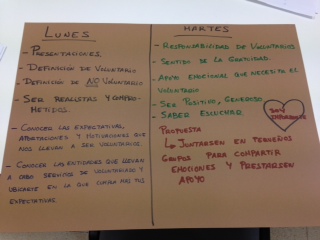 LUNES
- PRESENTACIONES
- DEFINICIÓN DE VOLUNTARIO
- DEFINICIÓN DE NO VOLUNTARIO
- SER REALISTAS Y COMPRO-
METIDOS
- CONOCER LAS EXPECTATIVAS,
APORTACIONES Y MOTIVACIONES QUE
NOS LLEVAN A SER VOLUNTARIOS
- CONOCER LAS ENTIDADES QUE LLEVAN
A CABO SERVICIOS DE VOLUNTARIADO Y
UBICARSE EN LA QUE CUMPLA MÁS TUS
EXPECTATIVAS
MARTES
- RESPONSABILIDAD DE VOLUNTARIOS
- SENTIDO DE LA GRATUIDAD.
- APOYO EMOCIONAL QUE NECESITA EL
VOLUNTARIO
- SER POSITIVO, GENEROSO
- SABER ESCUCHAR
SOY
IMPORTANTE
PROPUESTA
JUNTARSEN EN PEQUEÑOS
GRUPOS PARA COMPARTIR
EMOCIONES Y PRESTARSEN
APOYO